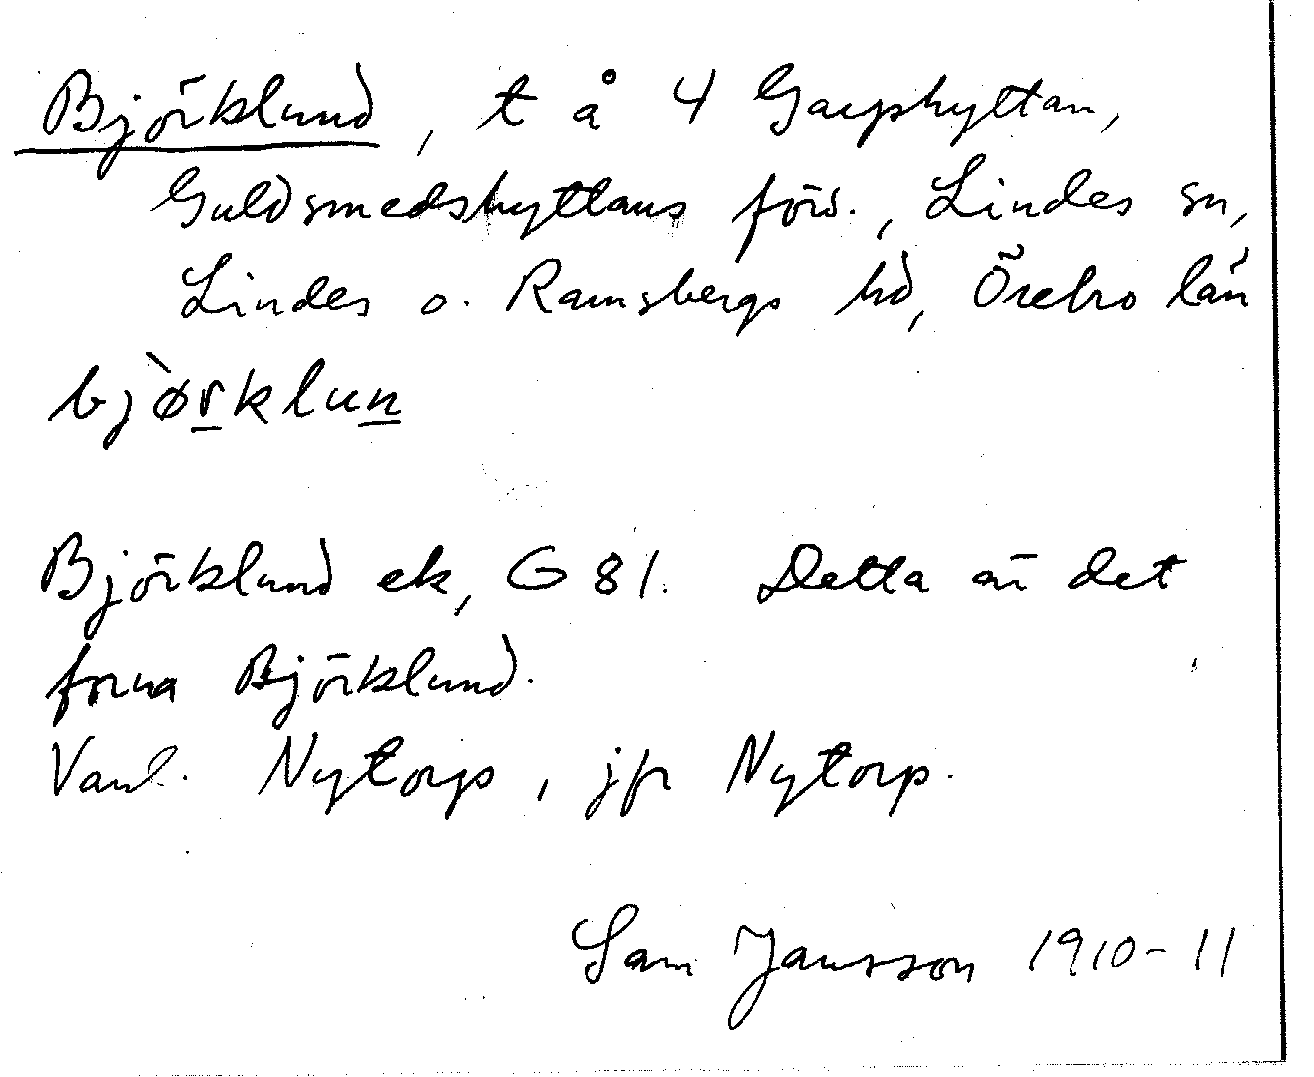 Björklund, t å 4 Garphyttan,
Guldsmedshyttans förs., Lindes sn,
Lindes o. Ramsbergs hd, Örebro län
bjø̀rklun
Björklund ek, G 81. Detta är det
forna Björklund.
Vanl. Nytorps, jfr Nytorp.
Sam Jansson 1910-11